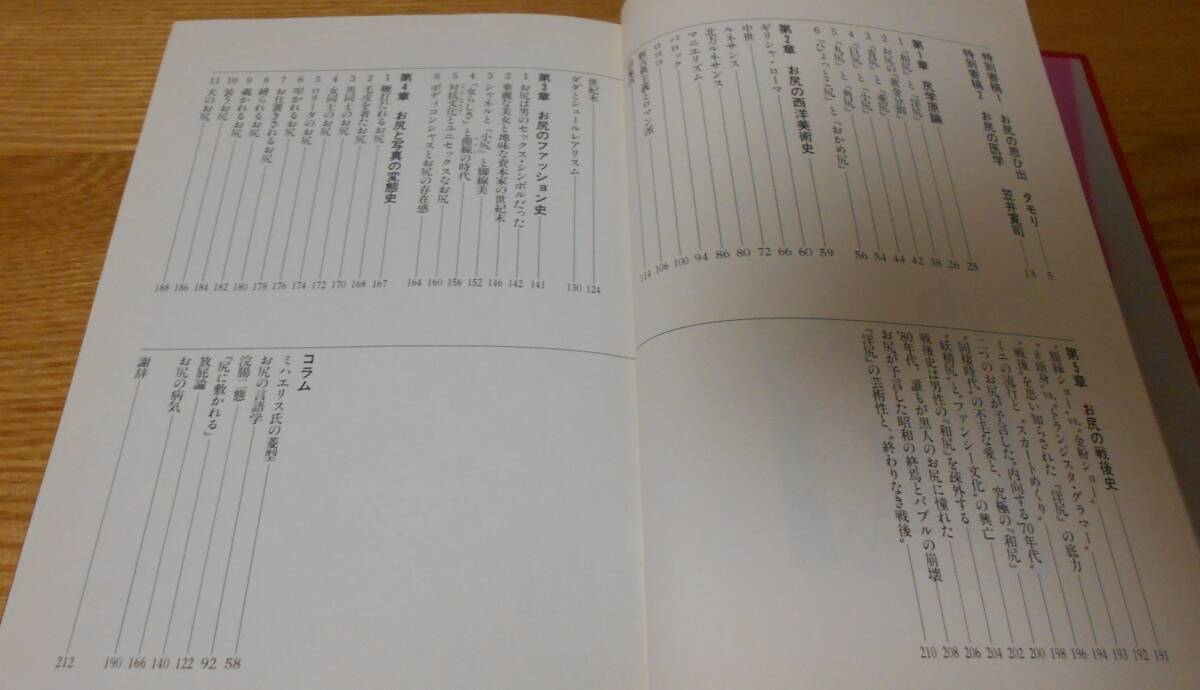 特別寄稿1 お尻の思ひ出 タモリ 5
特別寄稿2 お尻の医学 笠井寛司 13
第1章 尻学原論 25
1 『和尻』と『洋尻』 26
2 お尻の『黄金分割』 38
3 『青尻』と『老尻』 42
4 『巨尻』と『小尻』 44
5 『丸尻』と『角尻』 54
6 『ひょっとこ尻』と『おかめ尻』 56
第2章 お尻の西洋美術史 59
ギリシャ・ローマ 60
中世 66
ルネサンス 72
北方ルネサンス 80
マニエリズム 86
バロック 94
ロココ 100
新古典主義とロマン派 106
114
世紀末 124
ダダとシュールレアリスム 130
第3章 お尻のファッション史 141
1 お尻は男のセックス・シンボルだった 142
2 華麗な美女と地味な資本家の世紀末 146
3 シャネルと『小尻』と脚線美 152
4 『女らしさ』と曲線の時代 156
5 対抗文化とユニセックスなお尻 160
6 ボディコンシャスとお尻の存在感 164
第4章 お尻と写真の変態史 167
1 鞭打たれるお尻 168
2 毛皮を着たお尻 170
3 男同士のお尻 172
4 女同士のお尻 174
5 ロリータのお尻 176
6 叩かれるお尻 178
7 お仕置きされるお尻 180
8 縛られるお尻 182
9 覗かれるお尻 184
10 装うお尻 186
11 犬のお尻 188
第5章 お尻の戦後史 191
“額縁ショー”vs.“金粉ショー” 192
“8頭身”vs.“トランジスタ・グラマー” 193
“戦後”を思い知らされた『洋尻』の底力 194
ミニの流行と“スカートめくり” 196
二つのお尻が予言した“内向する'70年代” 198
“同棲時代”の不毛な愛と、究極の『和尻』 200
“妖精尻”と“ファンシー文化”の興亡 202
戦後史は男性の『和尻』を疎外する 204
'80年代、誰もが黒人のお尻に憧れた 206
お尻が予言した昭和の終焉とバブルの崩壊 208
『洋尻』の芸術性と、“終わりなき戦後” 210
コラム
ミハエリス氏の菱型 58
お尻の言語学 92
浣腸二態 122
『尻に敷かれる』 140
放屁論 166
お尻の病気 190
謝辞 212